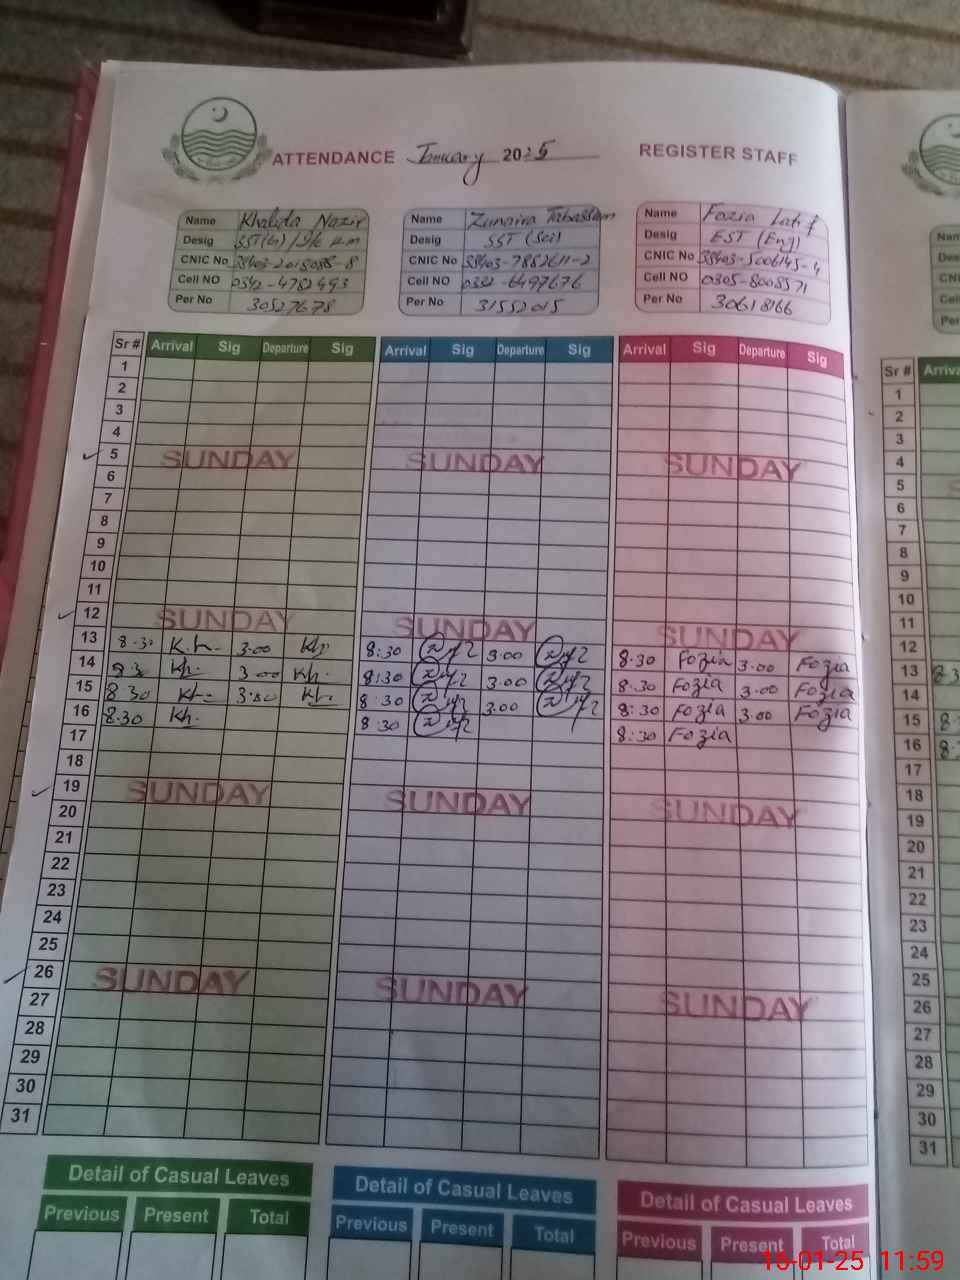 ATTENDANCE January 2025 REGISTER STAFF
Name Khalida Nazir
Desig SST(G) / I/c H.M
CNIC No 38403-2015085-8
Cell NO 0342-4782493
Per No 30527678
Name Zunaira Tabassum
Desig SST (Sci)
CNIC No 38403-7882611-2
Cell NO 0332-6497676
Per No 31552015
Name Fozia Latif
Desig EST (Eng)
CNIC No 38403-5006145-4
Cell NO 0305-8008571
Per No 30618166
Sr # Arrival Sig Departure Sig Arrival Sig Departure Sig Arrival Sig Departure Sig
1
2
3
4
5 SUNDAY SUNDAY SUNDAY
6
7
8
9
10
11
12 SUNDAY SUNDAY SUNDAY
13 8.30 K.h. 3.00 Kh 8:30 3.00 8.30 Fozia 3.00 Fozia
14 8.30 Kh. 3.00 Kh. 8:30 3.00 8.30 Fozia 3.00 Fozia
15 8.30 Kh. 3.00 Kh. 8:30 3.00 8:30 Fozia 3.00 Fozia
16 8.30 Kh. 8:30 8:30 Fozia
17
18
19 SUNDAY SUNDAY SUNDAY
20
21
22
23
24
25
26 SUNDAY SUNDAY SUNDAY
27
28
29
30
31
Detail of Casual Leaves Detail of Casual Leaves Detail of Casual Leaves
Previous Present Total Previous Present Total Previous Present Total
Sr #
1
2
3
4
5
6
7
8
9
10
11
12
13
14
15
16
17
18
19
20
21
22
23
24
25
26
27
28
29
30
31
16-01-25 11:59